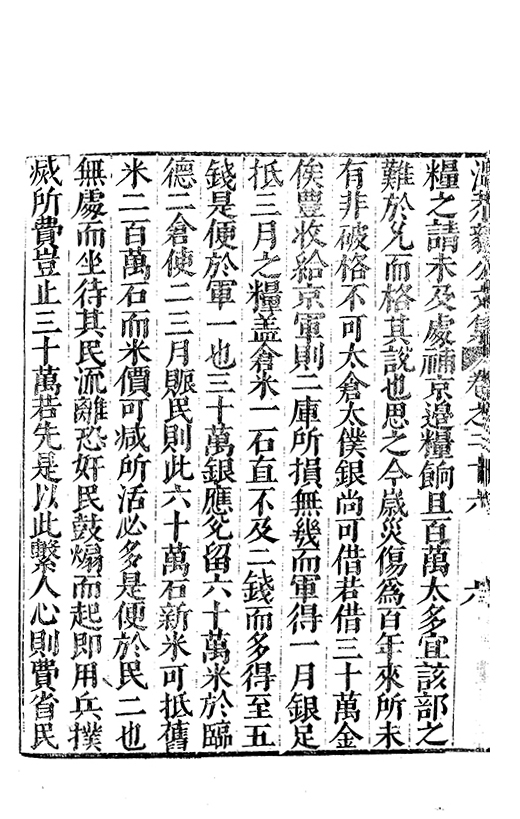 溫恭毅公文集 卷之三十六 六
糧之請未及處補京邊糧餉且百萬太多宜該部之
難於免而格其說也思之今歲災傷爲百年來所未
有非破格不可太倉太僕銀尚可借若借三十萬金
俟豐收給京軍則二庫所損無幾而軍得一月銀足
抵三月之糧盖倉米一石直不及二錢而多得至五
錢是便於軍一也三十萬銀應免留六十萬米於臨
德二倉使二三月賑民則此六十萬石新米可抵舊
米二百萬石而米價可减所活必多是便於民二也
無處而坐待其民流離恐奸民鼓煽而起即用兵撲
滅所費豈止三十萬若先是以此繫人心則費省民